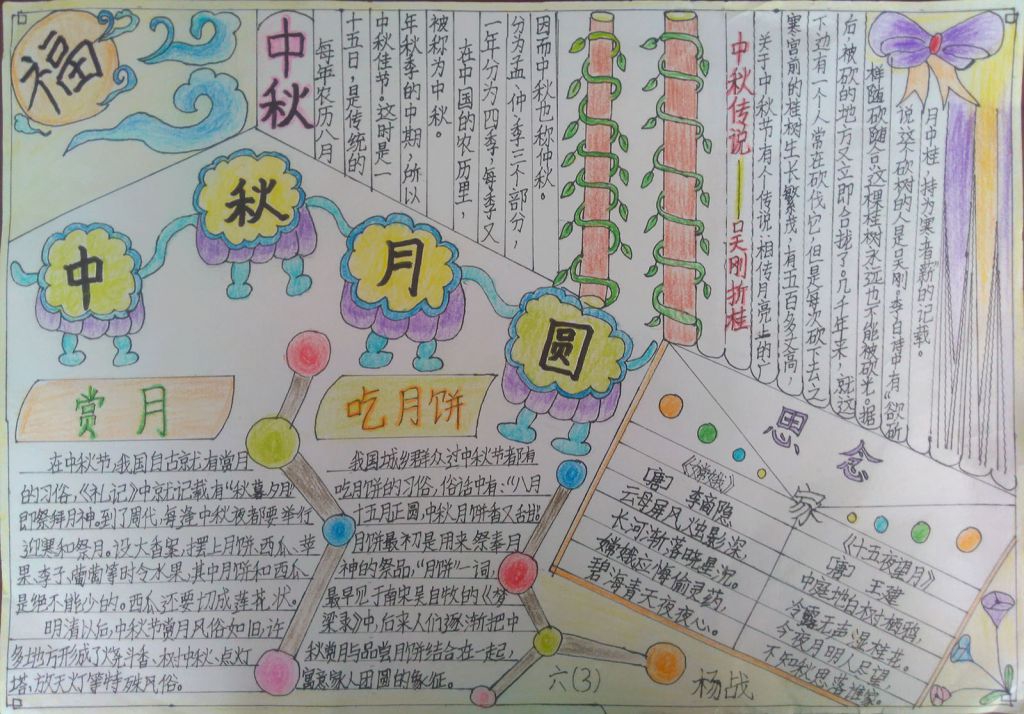 福
中秋
每年农历八月
十五日,是传统的
中秋佳节。这时是一
年秋季的中期,所以
被称为中秋。
在中国的农历里,
一年分为四季,每季又
分为孟、仲、季三个部分,
因而中秋也称仲秋。
中秋传说——吴刚折桂
关于中秋节,有人传说:相传月亮上的广
寒宫前的桂树生长繁茂,有五百多丈高,
下边有一个人常在砍伐它,但是每次砍下去之
后,被砍的地方又立即合拢了。几千年来,就这
样随砍随合,这棵桂树永远也不能被砍光。据
说这个砍树的人是吴刚,李白诗中有“欲斫
月中桂,持为寒者薪的记载。
中
秋
月
圆
赏月
在中秋节,我国自古就有赏月
的习俗,《礼记》中就记载有“秋暮夕月”,
即祭拜月神。到了周代,每逢中秋夜都要举行
迎寒和祭月。设大香案,摆上月饼、西瓜、苹
果、李子、葡萄等时令水果,其中月饼和西瓜
是绝不能少的。西瓜还要切成莲花状。
明清以后,中秋节赏月风俗如旧,许
多地方形成了烧斗香、树中秋、点灯
塔、放天灯等特殊风俗。
吃月饼
我国城乡群众过中秋节都有
吃月饼的习俗,俗话中有:“八月
十五月正圆,中秋月饼香又甜”
月饼最初是用来祭奉月
神的祭品,“月饼”一词,
最早见于南宋吴自牧的《梦
梁录》中,后来人们逐渐把中
秋赏月与品尝月饼结合在一起,
寓意家人团圆的象征。
思念家
《嫦娥》
[唐] 李商隐
云母屏风烛影深,
长河渐落晓星沉。
嫦娥应悔偷灵药,
碧海青天夜夜心。
《十五夜望月》
[唐] 王建
中庭地白树栖鸦,
冷露无声湿桂花。
今夜月明人尽望,
不知秋思落谁家。
六(3) 杨战